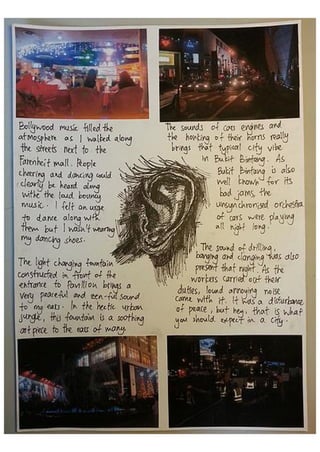 Bollywood music filled the
atmosphere as I walked along
the streets next to the
Farenheit mall. People
cheering and dancing could
clearly be heard along
with the loud bouncy
music. I felt an urge
to dance along with
them but I wasn't wearing
my dancing shoes.
The light changing fountain
constructed in front of the
entrance to Pavilion brings a
very peaceful and zen-ful sound
to my ears. In the hectic urban
jungle, this fountain is a soothing
art piece to the ears of many.
The sounds of cars engines and
the honking of their horns really
brings that typical city vibe
in Bukit Bintang. As
Bukit Bintang is also
well known for its
bad jams, the
unsynchronised orchestra
of cars were playing
all night long.
The sound of drilling,
banging and clanging was also
present that night. As the
workers carried out their
duties, loud annoying noise
came with it. It was a disturbance
of peace, but hey, that is what
you should expect in a city.